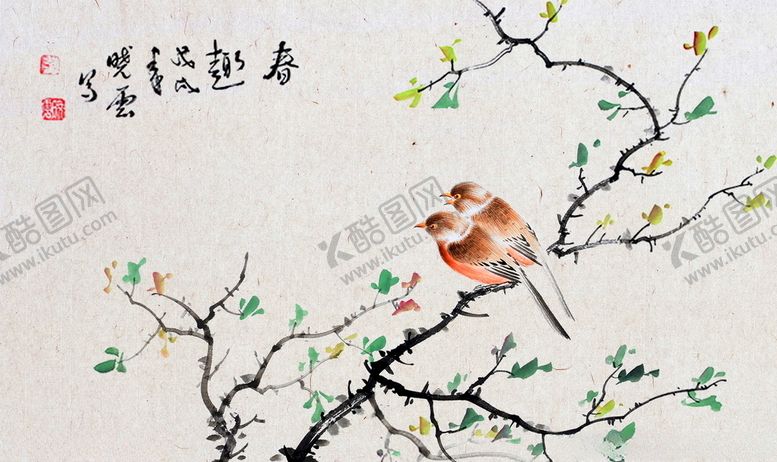 春
趣
戊戌
年
曉雲
写
酷图网
www.ikutu.com
酷图网
www.ikutu.com
酷图网
www.ikutu.com